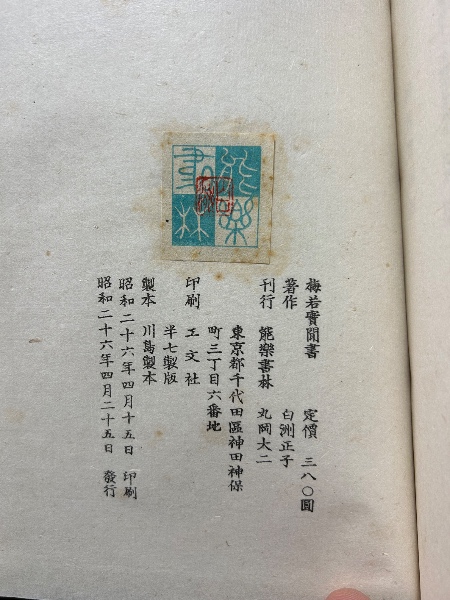 能樂書林
梅若實聞書 定價 三八〇圓
著作 白洲正子
刊行 能樂書林 丸岡大二
東京都千代田區神田神保
町三丁目六番地
印刷 工文社
半七製版
製本 川島製本
昭和二十六年四月十五日 印刷
昭和二十六年四月二十五日 發行